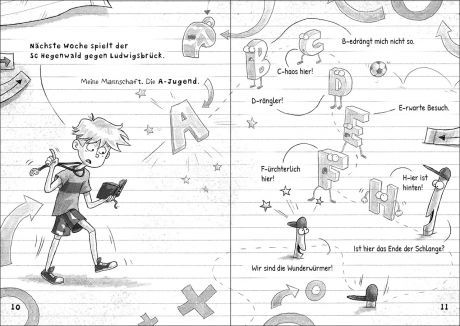 Nächste Woche spielt der
SC Hegenwald gegen Ludwigsbrück.
Meine Mannschaft. Die A-Jugend.
A
10
B-edrängt mich nicht so.
C
B
C-haos hier!
D
D-rängler!
E-rwarte Besuch.
E
F-ürchterlich
hier!
F
H-ier ist
hinten!
H
Ist hier das Ende der Schlange?
Wir sind die Wunderwürmer!
11